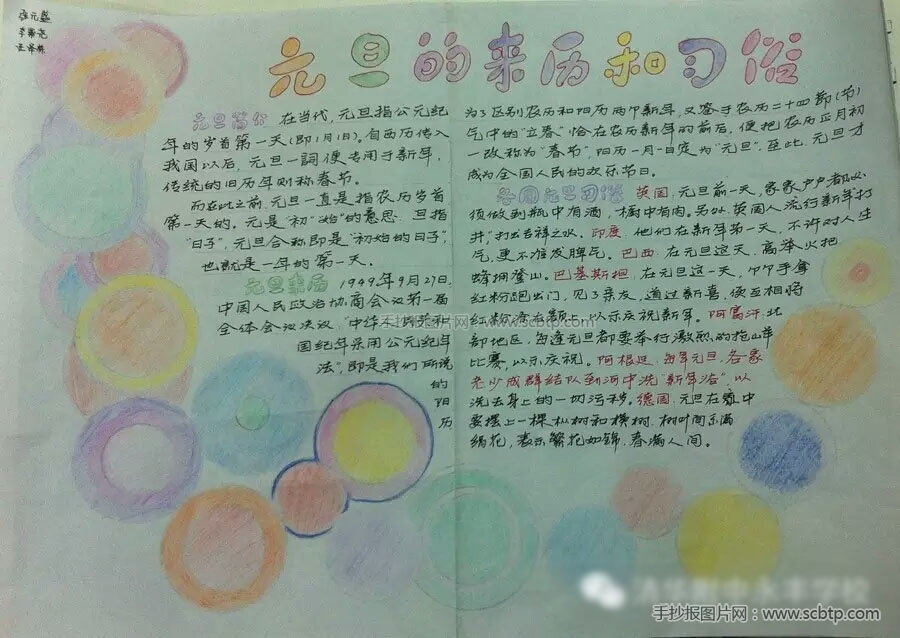 元旦的来历和习俗
元旦简介 在当代,元旦指公元纪
年的岁首第一天(即1月1日)。自西历传入
我国以后,元旦一詞便专用于新年,
传统的旧历年则称春节。
而在此之前,元旦一直是指农历岁首
第一天的。元是"初""始"的意思,旦指
"日子",元旦合称即是"初始的日子",
也就是一年的第一天。
元旦来历 1949年9月27日,
中国人民政治协商会议第一届
全体会议决议,"中华人民共和
国纪年采用公元纪年
法",即是我们所说
的
阳
历
为了区别农历和阳历两个新年,又鉴于农历二十四节(节)
气中的"立春"恰在农历新年的前后,便把农历正月初
一改称为"春节",阳历一月一日定为"元旦",至此,元旦才
成为全国人民的欢乐节日。
各国元旦习俗 英国,元旦前一天,家家户户都必
须做到瓶中有酒,橱中有肉。另外,英国人流行新年打
井,打出吉祥之水。印度,他们在新年第一天,不许对人生
气,更不准发脾气。巴西,在元旦这天,高举火把
蜂拥登山。巴基斯坦,在元旦这一天,个个手拿
红粉跑出门,见了亲友,道过新喜,便互相将
红粉涂在额上,以示庆祝新年。阿富汗,北
部地区,每逢元旦都要举行激烈的抢山羊
比赛,以示庆祝。阿根廷,每年元旦,各家
老少成群结队到河中洗"新年浴",以
洗去身上的一切污秽。德国,元旦在家中
要摆上一棵枞树和横树,树叶间系满
绢花,表示繁花如锦,春满人间。
手抄报图片网 www.scbtp.com
清华附中永丰学校
手抄报图片网:www.scbtp.com